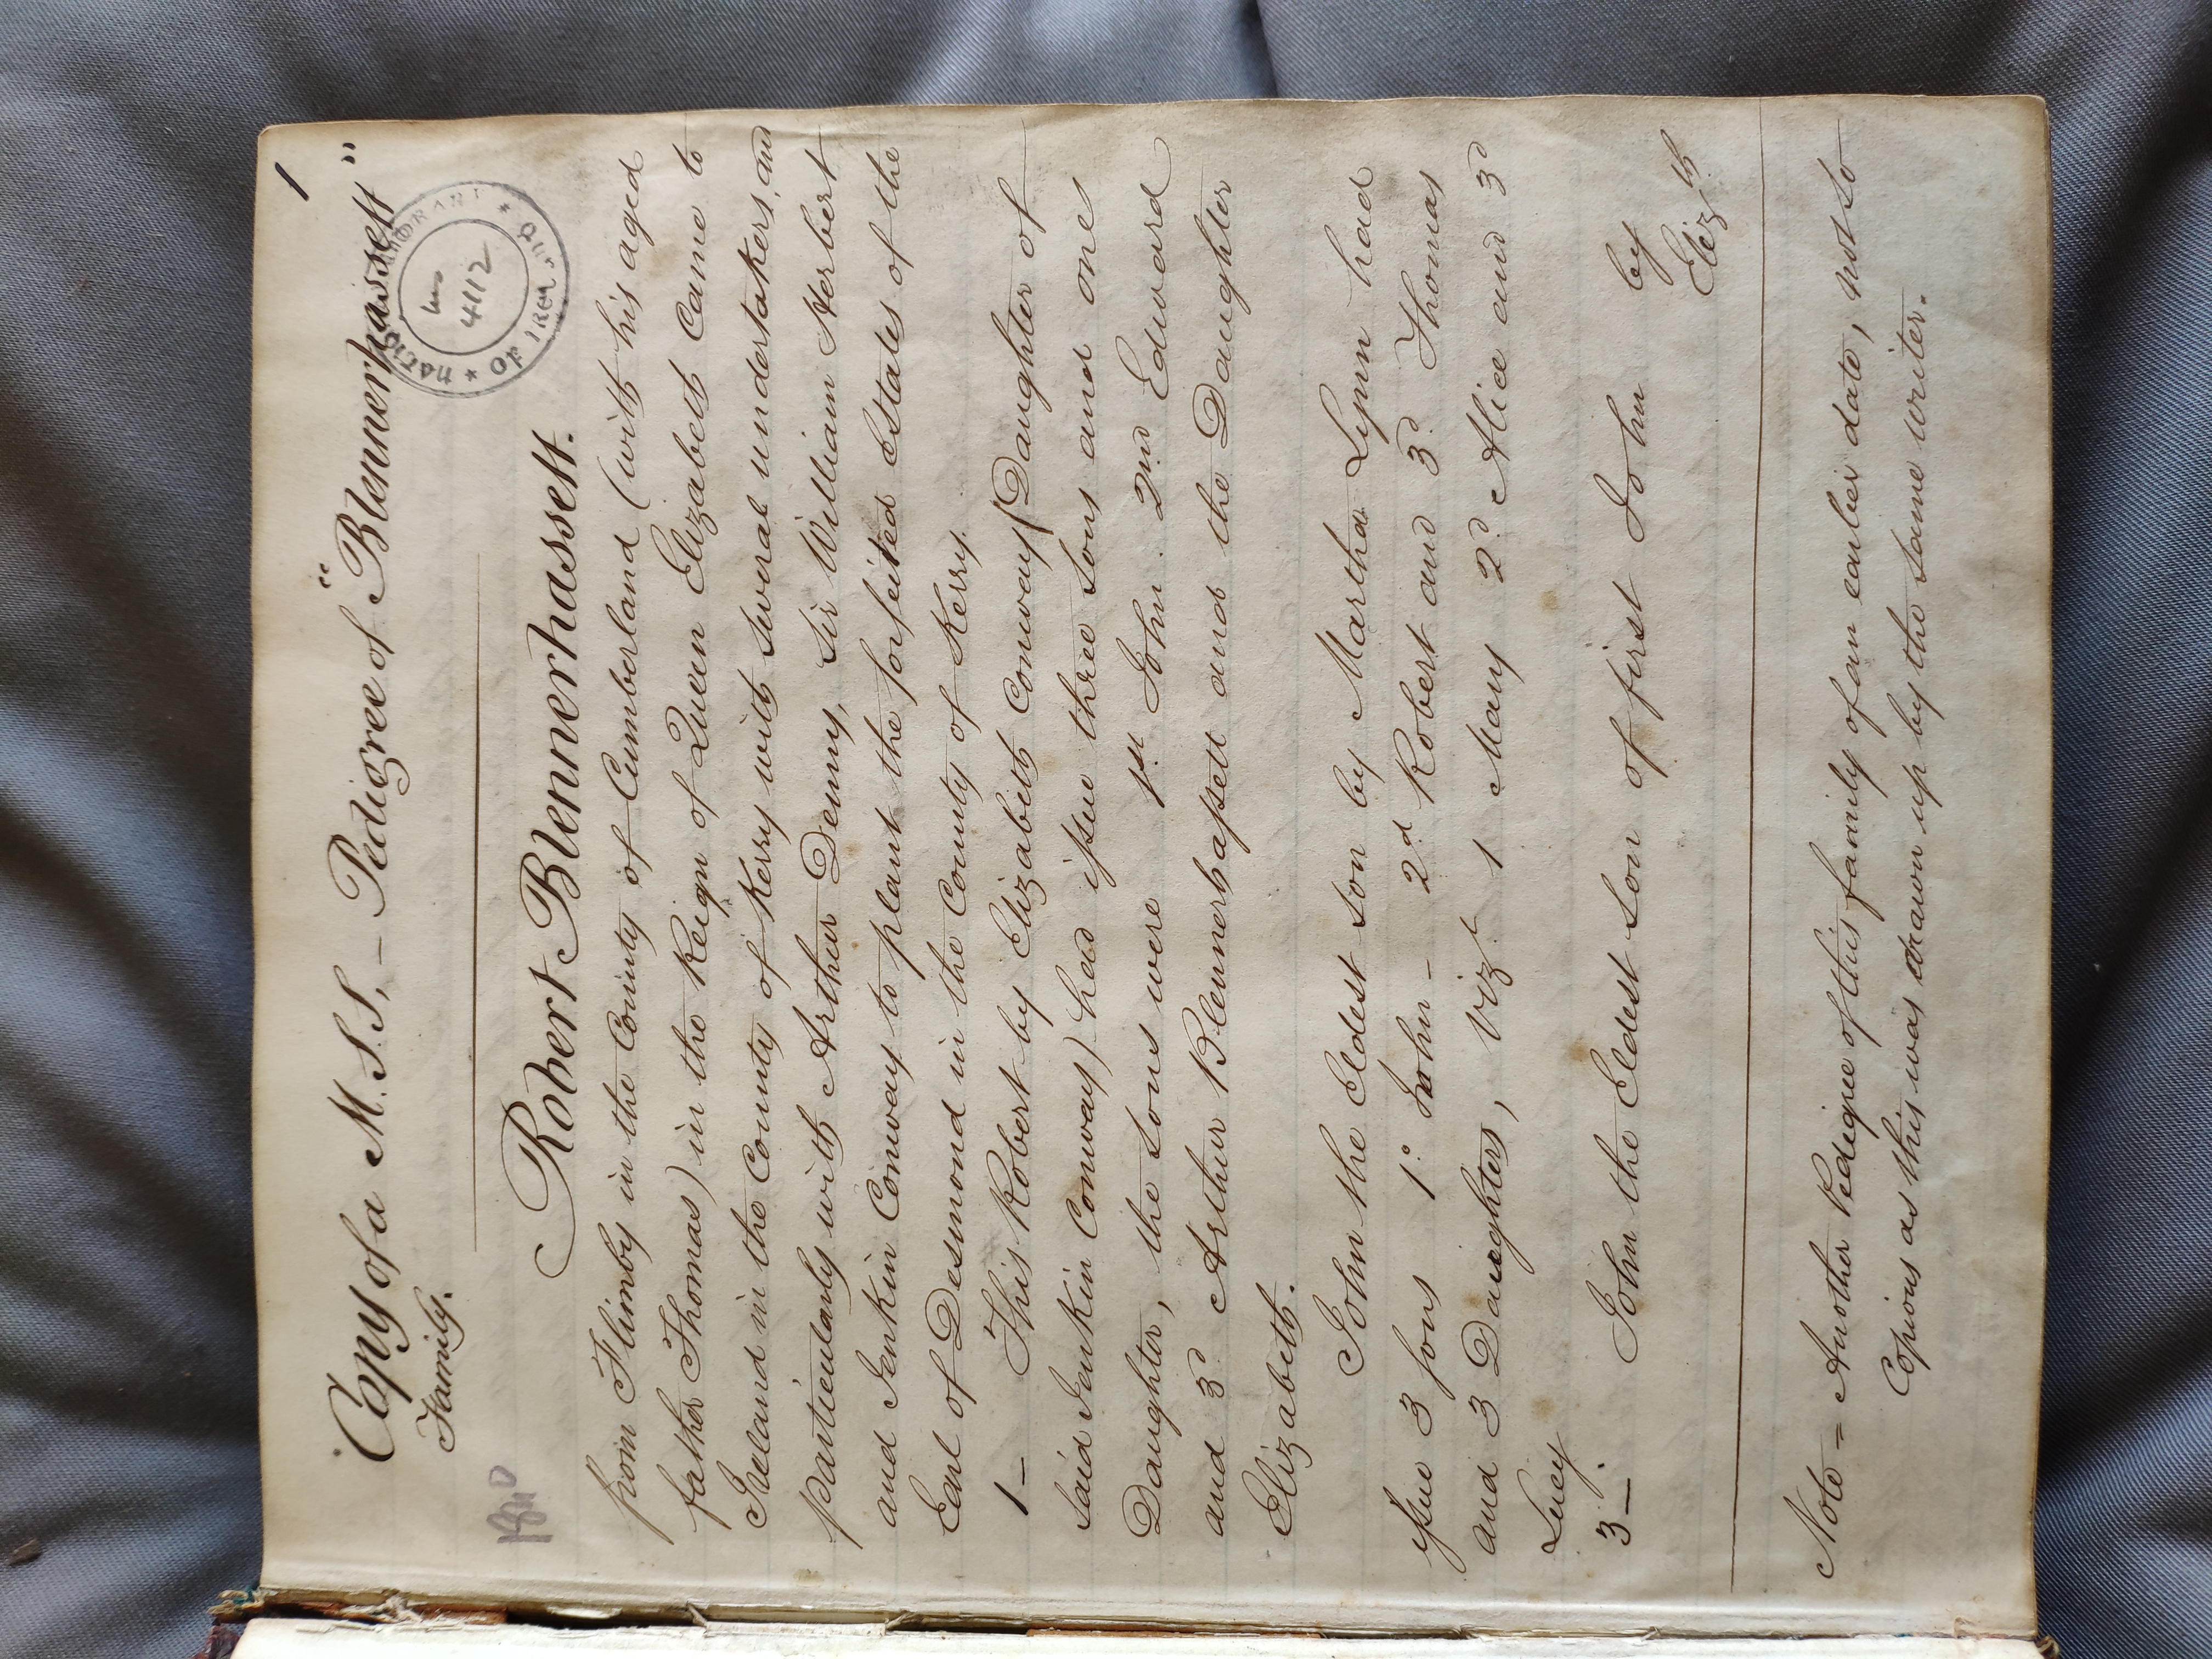 1
"Copy of a M.S.S, – Pedigree of "Blennerhassett"
Family.
NATIONAL LIBRARY * OF IRELAND *
Ms
4112
Robert Blennerhassett.
from Flimby in the County of Cumberland (with his aged
father Thomas) in the Reign of Queen Elizabeth Came to
Ireland in the County of Kerry with Several undertakers, and
particularly with Arthur Denny, Sir William Herbert
and Jenkin Conway to plant the forfeited Estates of the
Earl of Desmond in the County of Kerry.
1– This Robert by Elizabeth Conway (Daughter of
Said Jenkin Conway) had issue three Sons and one
Daughter, the Sons were 1st. John. 2nd. Edward
and 3d. Arthur Blennerhassett and the Daughter
Elizabeth.
John the Eldest Son by Martha Lynn had
issue 3 sons 1o. John – 2d Robert and 3d. Thomas
and 3 Daughters, vizt. 1 Mary 2d Alice and 3d
Lucy.
3– John the Eldest Son of first John by
Elizth.
Note – Another Pedigree of this family of an earlier date, not so
Copious as this was drawn up by the same writer.